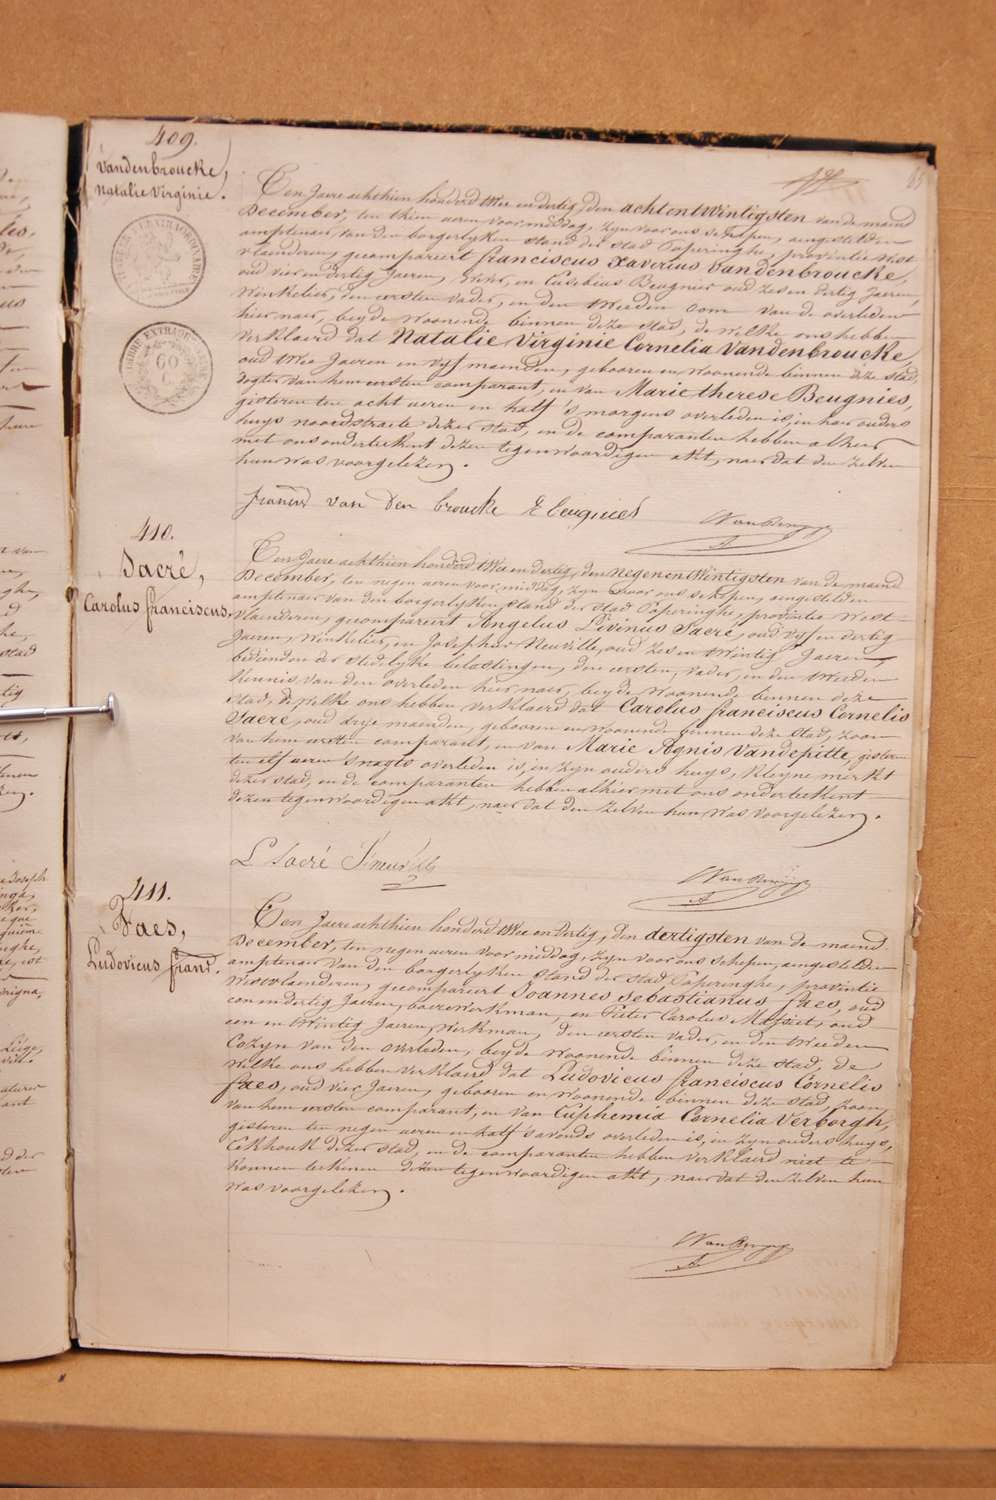 409.
Vandenbroucke,
Natalie Virginie.
Den Jaere achthien honderd twee en dertig, den achtentwintigsten van de maend
December, ten thien ueren voor middag, zyn voor ons schepen, aengestelden
amptenaer van den borgerlyken stand der stad Poperinghe, provintie West-
vlaenderen, gecompareert franciscus Xaverius Vandenbroucke,
oud vier en dertig Jaeren, en Eusebius Beugnies oud zes en dertig Jaeren,
Winkelier, den eersten vader, en den tweeden oom van de overleden
hier naer, beyde woonende binnen deze stad, de welke ons hebben
verklaerd dat Natalie Virginie Cornelia Vandenbroucke,
oud twee Jaeren en vyf maenden, gebooren en woonende binnen deze stad,
dogter van hem eersten comparant, en van Marie therese Beugnies,
gisteren ten acht ueren en half 's morgens overleden is, in haer ouders
huys noordstraete dezer stad, en de comparanten hebben alhier
met ons onderteekent dezen tegenwoordigen akt, naer dat den zelven
hun was voorgelezen.
van den broucke E beugnies
410.
Sacré,
Carolus franciscus.
Den Jaere achthien honderd twee en dertig, den negenentwintigsten van de maend
December, ten negen ueren voor middag, zyn voor ons schepen, aengestelden
amptenaer van den borgerlyken stand der stad Poperinghe, provintie West-
vlaenderen, gecompareert Angelus Livinus Sacré, oud vyf en dertig
Jaeren, Winkelier, en Josephus Neuville, oud zes en twintig Jaeren,
bedienden der stedelyke belastingen, den eersten, vader, en den tweeden
kennis van den overleden hier naer, beyde woonende binnen deze
stad, de welke ons hebben verklaerd dat Carolus franciscus Cornelis
Sacré, oud drye maenden, gebooren en woonende binnen deze stad, zoon
van hem eersten comparant, en van Marie Agnis Vandepitte, gisteren
ten elf ueren snagts overleden is, in zyn ouders huys, kleyne merkt
dezer stad, en de comparanten hebben alhier met ons onderteekent
dezen tegenwoordigen akt, naer dat den zelven hun was voorgelezen.
L Sacré
411.
Faes,
Ludovicus frans.
Den Jaere achthien honderd twee en dertig, den dertigsten van de maend
December, ten negen ueren voor middag, zyn voor ons schepen, aengestelden
amptenaer van den borgerlyken stand der stad Poperinghe, provintie
Westvlaenderen, gecompareert Joannes Sebastianus faes, oud
een en dertig Jaeren, boerewerkman, en Pieter Carolus Massiet, oud
een en twintig Jaeren, werkman, den eersten vader, en den tweeden
Cozyn van den overleden, beyde woonende binnen deze stad, de
welke ons hebben verklaerd dat Ludovicus franciscus Cornelis
faes, oud vier Jaeren, gebooren en woonende binnen deze stad, zoon
van hem eersten comparant, en van Euphemia Cornelia Verborgh,
gisteren ten negen ueren en half s'avonds overleden is, in zyn ouders huys,
Eekhoek dezer stad, en de comparanten hebben verklaerd niet te
konnen teekenen dezen tegenwoordigen akt, naer dat den zelven hun
was voorgelezen.